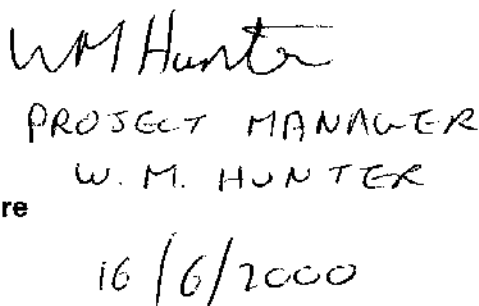 WM Hunter
PROJECT MANAGER
W. M. HUNTER
re
16/6/2000